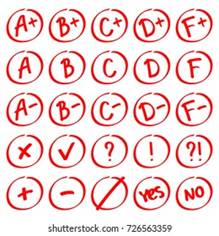 A+ B+ C+ D+ F+
A B C D F
A- B- C- D+ F-
× ✓ ? ! ?!
+ - YES NO
shutterstock.com · 726563359